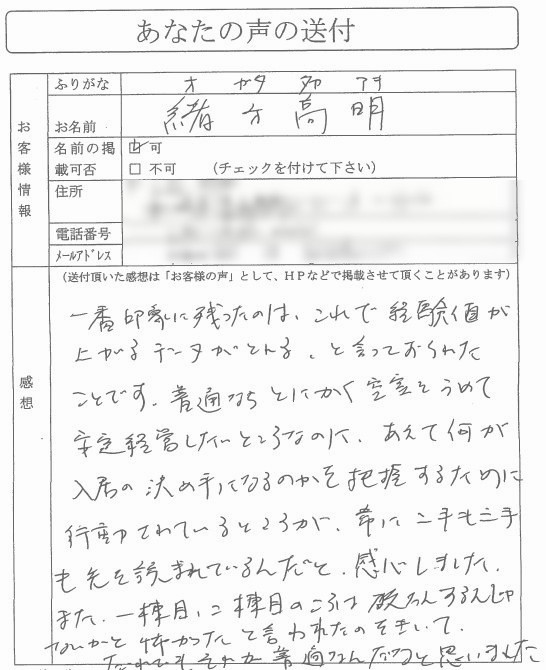 あなたの声の送付
ふりがな オ ガタ タカ アキ
お客様情報
お名前 緒方 高明
名前の掲載可否
☑ 可
□ 不可 (チェックを付けて下さい)
住所
電話番号
メールアドレス
(送付頂いた感想は「お客様の声」として、HPなどで掲載させて頂くことがあります)
感想
一番印象に残ったのは、これで経験値が
上がるデータがとれる、と言っておられた
ことです。普通ならとにかく空室をうめて
安定経営したいところなのに、あえて何が
入居の決め手になるのかを把握するために
行動されているところが、常に二手も三手
も先を読まれているんだと、感心しました。
また、一棟目、二棟目のころは破たんするんじゃ
ないかと怖かったと言われたのをきいて、
だれでもそれが普通なんだなと思いました